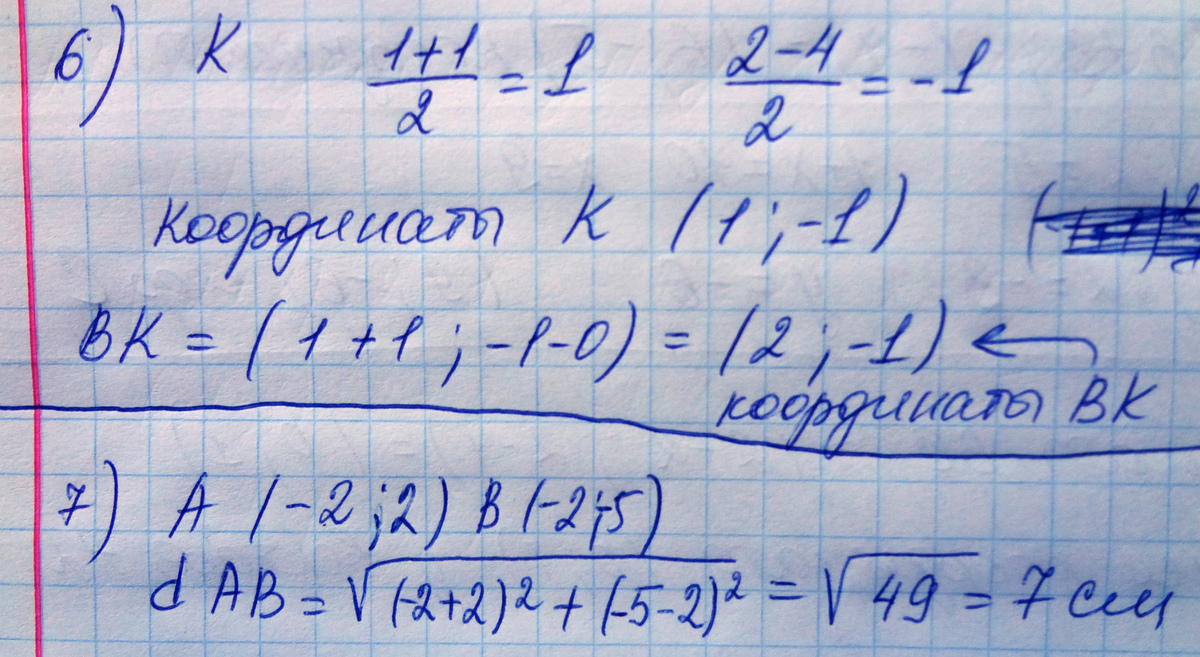 6) К (1+1)/2 = 1 (2-4)/2 = -1
координаты К (1; -1)
ВК = (1+1; -1-0) = (2; -1) ←
координаты ВК
7) А (-2; 2) В (-2; -5)
d AB = √((-2+2)² + (-5-2)²) = √49 = 7 см